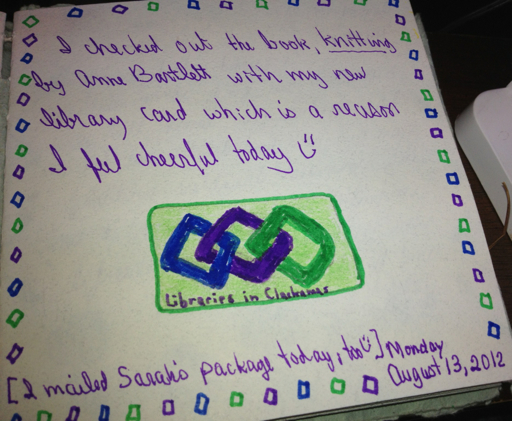 I checked out the book, knitting
by Anne Bartlett with my new
library card which is a reason
I feel cheerful today
Libraries in Clackamas
[I mailed Sarah's package today, too] Monday
August 13, 2012